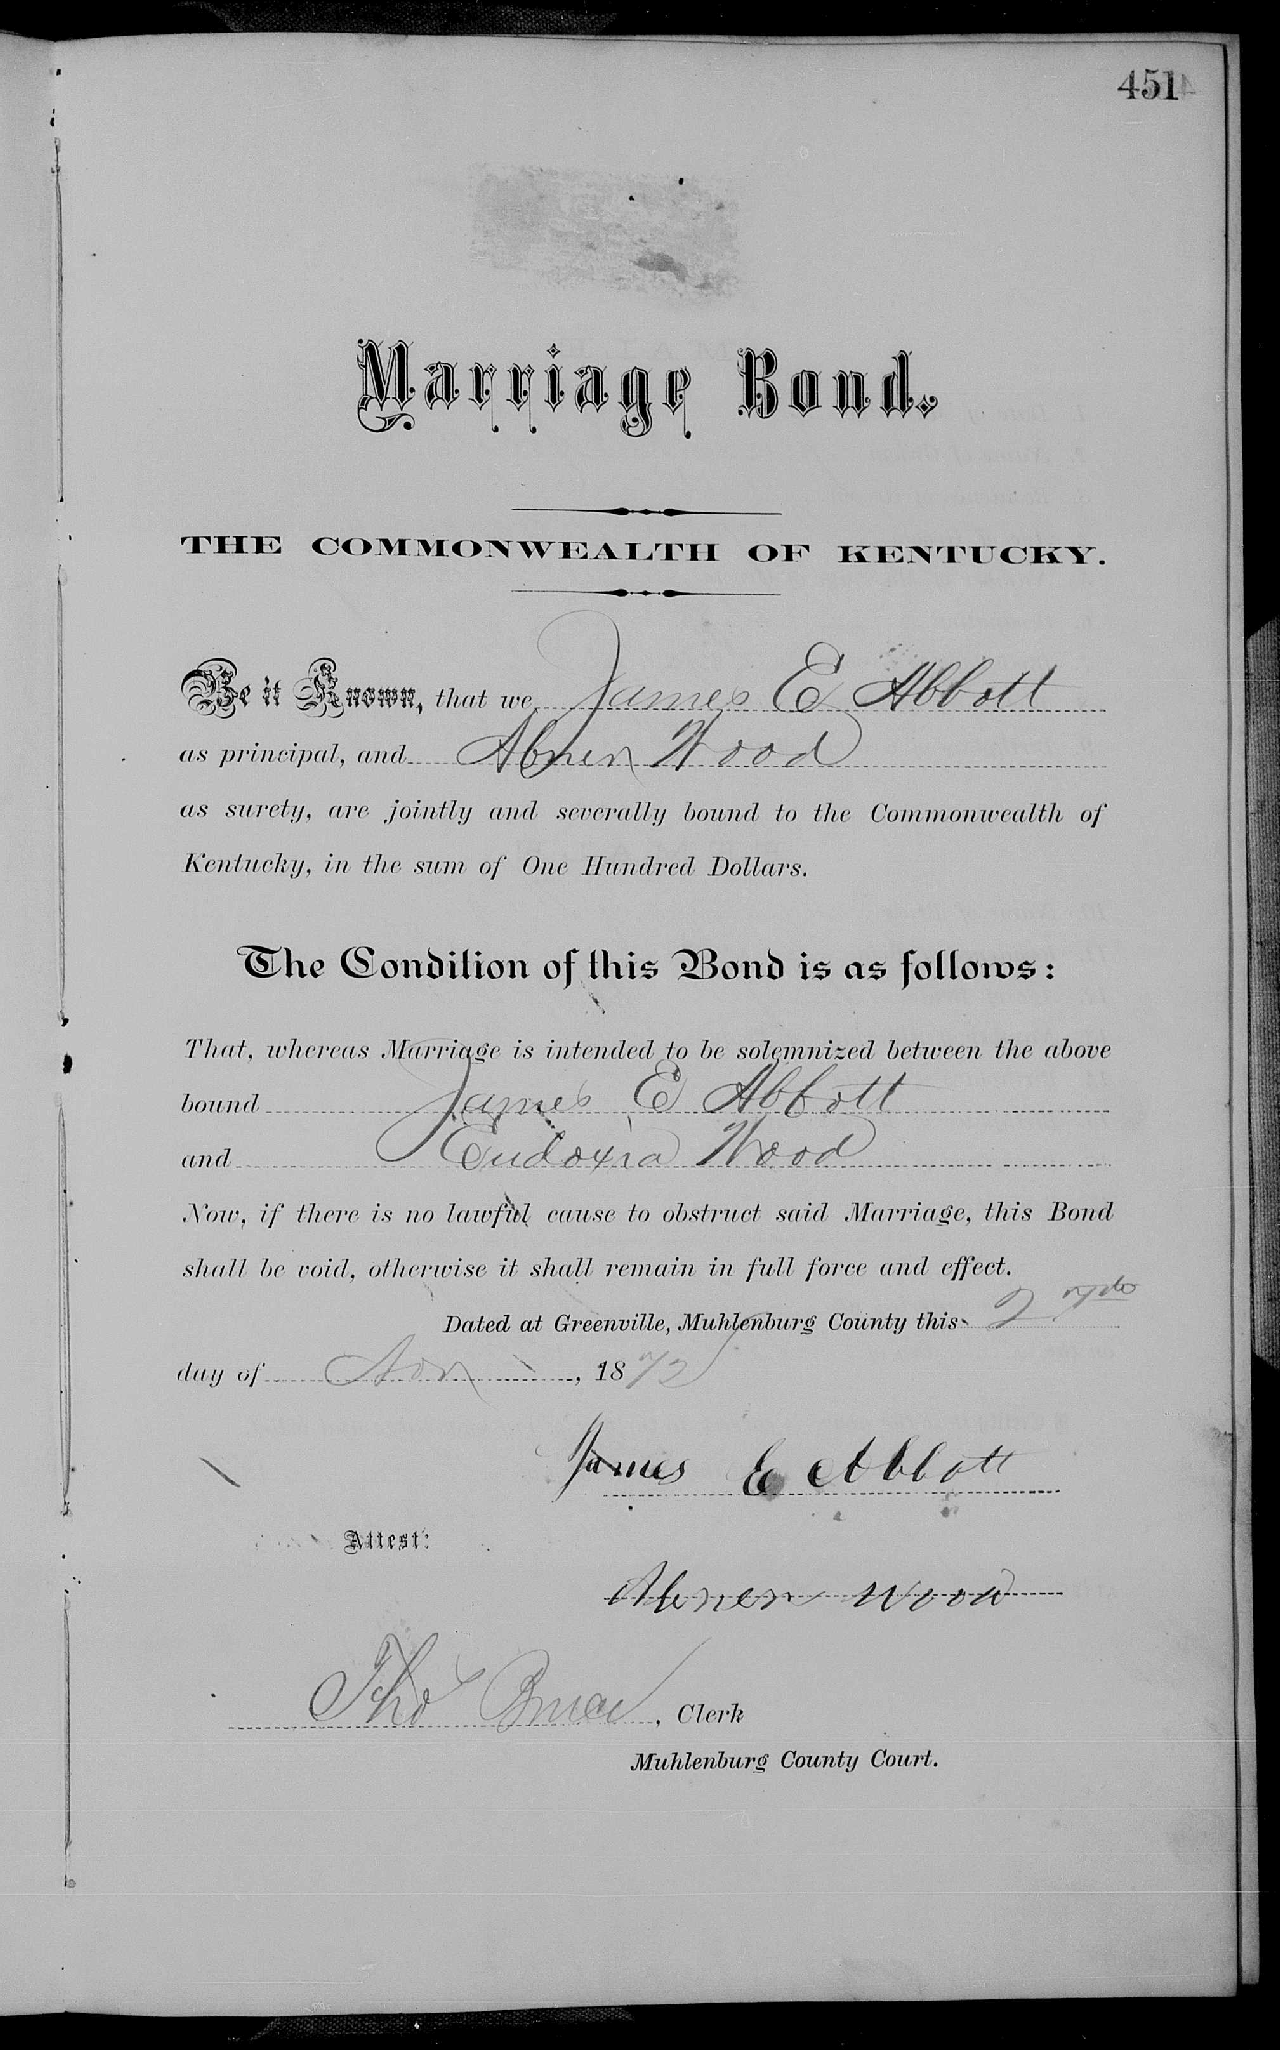 451
Marriage Bond.
THE COMMONWEALTH OF KENTUCKY.
Be it Known, that we, James E Abbott
as principal, and Abner Wood
as surety, are jointly and severally bound to the Commonwealth of
Kentucky, in the sum of One Hundred Dollars.
The Condition of this Bond is as follows:
That, whereas Marriage is intended to be solemnized between the above
bound James E Abbott
and Eudoxia Wood
Now, if there is no lawful cause to obstruct said Marriage, this Bond
shall be void, otherwise it shall remain in full force and effect.
Dated at Greenville, Muhlenburg County this
day of Nov, 1872
James E Abbott
Attest:
Abner Wood
Tho Bruce, Clerk
Muhlenburg County Court.